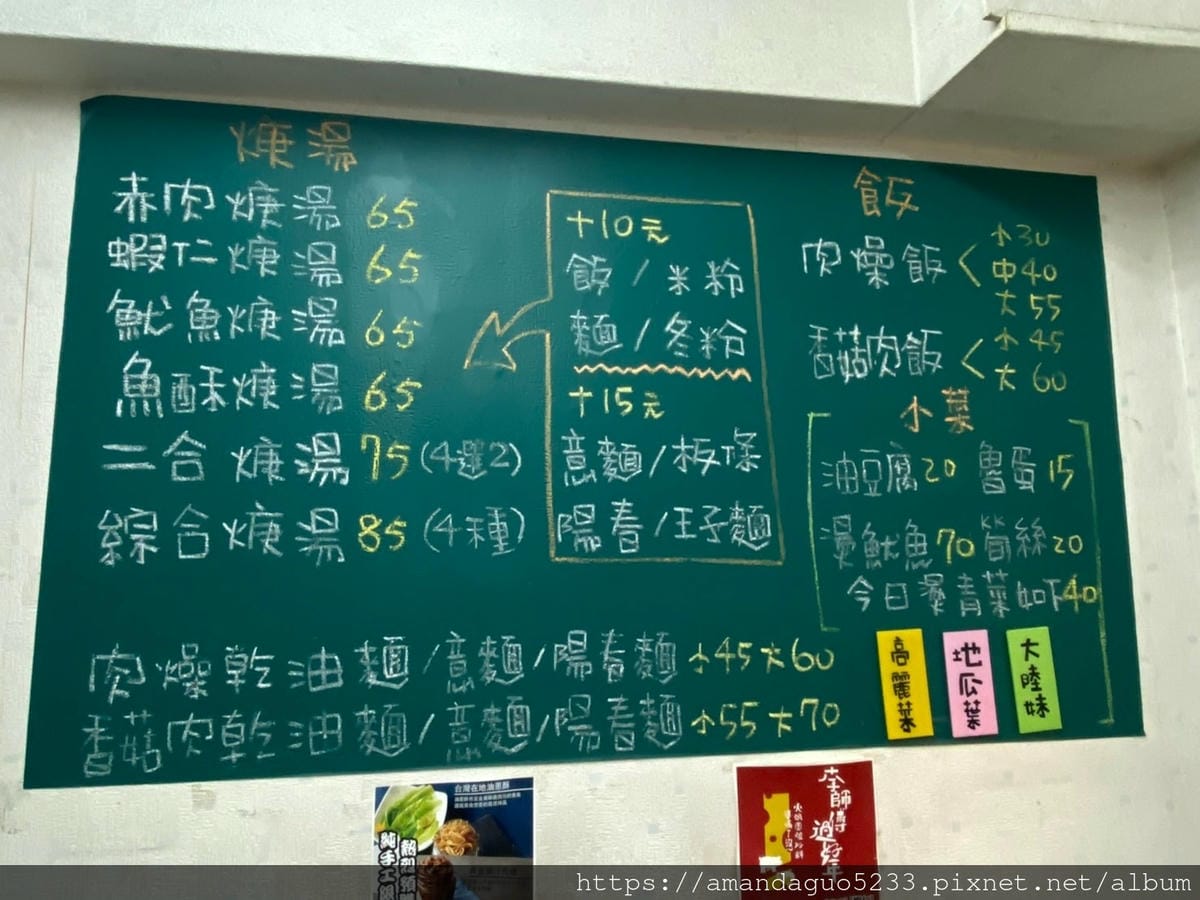 焿湯
赤肉焿湯 65
蝦仁焿湯 65
魷魚焿湯 65
魚酥焿湯 65
二合焿湯 75 (4選2)
綜合焿湯 85 (4種)
+10元
飯/米粉
麵/冬粉
+15元
意麵/板條
陽春/王子麵
飯
肉燥飯 小30
中40
大55
香菇肉飯 小45
大60
小菜
油豆腐20 魯蛋15
燙魷魚70 筍絲20
今日燙青菜如下40
高麗菜
地瓜葉
大陸妹
肉燥乾油麵/意麵/陽春麵 小45大60
香菇肉乾油麵/意麵/陽春麵 小55大70
台灣在地油蔥酥
純手工
李師傅
過好年
https://amandaguo5233.pixnet.net/album